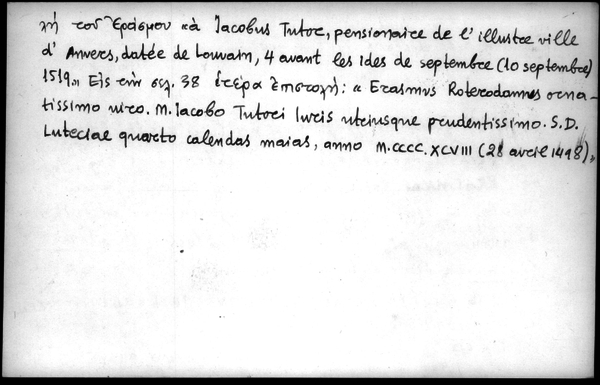 λή τοῦ Ἐράσμου «à Jacobus Tutor, pensionaire de l'illustre ville
d'Anvers, datée de Louvain, 4 avant les ides de septembre (10 septembre)
1519.» Εἰς τὴν σελ. 38 ἑτέρα ἐπιστολή: « Erasmus Roterodamus orna-
tissimo viro. M. Iacobo Tutori Iuris utriusque prudentissimo. S.D.
Luteciae quarto calendas maias, anno M.CCCC.XCVIII (28 avril 1498)»,